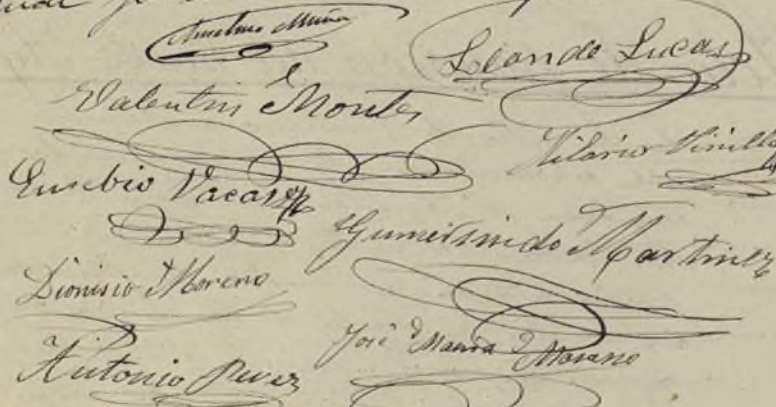 Anselmo Muñoz
Leando Lucas
Valentin Montes
Hilario Pinilla
Eusebio Vacas
Gumersindo Martinez
Dionisio Moreno
José Maria Morano
Antonio Perez